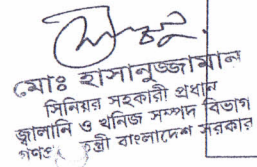 মোঃ হাসানুজ্জামান
সিনিয়র সহকারী প্রধান
জ্বালানি ও খনিজ সম্পদ বিভাগ
বাংলাদেশ সরকার